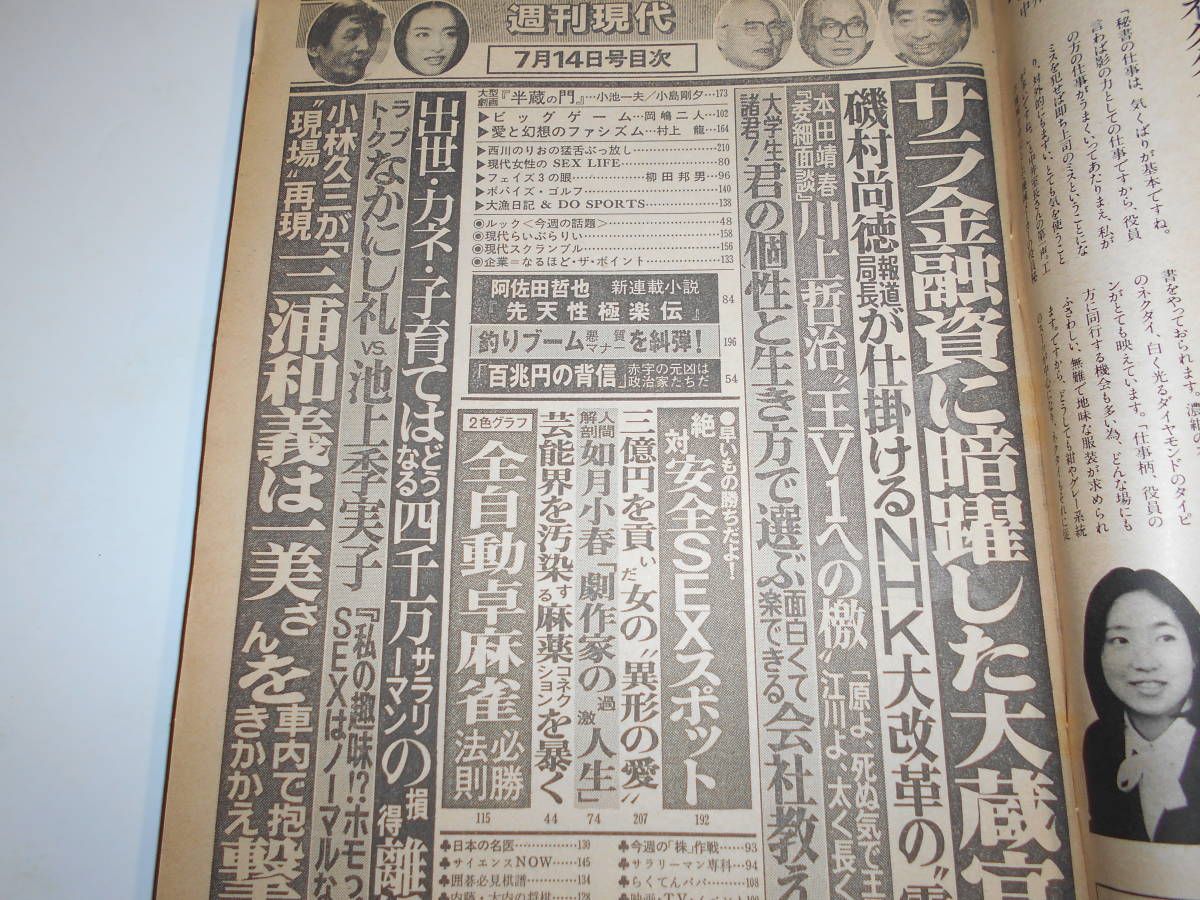 週刊現代
7月14日号目次
サラ金融資に暗躍した大蔵官
磯村尚徳報道局長が仕掛けるNHK大改革の“
本田靖春『委細面談』川上哲治“王V1への檄”「原よ、死ぬ気で王
江川よ、太く長く
大学生諸君!君の個性と生き方で選ぶ面白くて楽できる会社教え
大型劇画『半蔵の門』…小池一夫/小島剛夕…173
▶ビッグゲーム…岡嶋二人…102
▶愛と幻想のファシズム…村上 龍…164
▶西川のりおの猛舌ぶっ放し…210
▶現代女性の SEX LIFE…80
▶フェイズ3の眼…柳田邦男…96
▶ポパイズ・ゴルフ…140
▶大漁日記 & DO SPORTS…138
◉ルック<今週の話題>…48
◉現代らいぶらりい…158
◉現代スクランブル…156
◉企業=なるほど・ザ・ポイント…133
阿佐田哲也 新連載小説『先天性極楽伝』 84
釣りブーム悪質マナーを糾弾! 196
「百兆円の背信」赤字の元凶は政治家たちだ 54
●早いもの勝ちだよ!
絶対安全SEXスポット 192
三億円を貢いだ女の“異形の愛” 207
人間解剖 如月小春「劇作家の過激人生」 74
芸能界を汚染する麻薬コネクションを暴く 44
2色グラフ 全自動卓麻雀必勝法則 115
出世・カネ・子育てはどうなる四千万サラリーマンの損得離
ラブトクなかにし礼vs.池上季実子『私の趣味!?ホモっ
SEXはノーマルな
小林久三が「三浦和義は一美さんを車内で抱きかかえ撃
“現場”再現
♣今週の「株」作戦…93
♣サラリーマン専科…94
♣らくてんパパ…108
♣映画・TV・イベント
♣日本の名医…130
♣サイエンスNOW…145
♣囲碁必見棋譜…134
♣内藤・大内の将棋…128
「秘書の仕事は、気くばりが基本ですね。
言わば影の力としての仕事ですから、役員
の方の仕事がうまくいってあたりまえ、私が
ミスを犯せば即ち上司のミスということにな
り、対外的にもまずい。とても気を使うこと
書をやっておられます。濃紺の
のネクタイ、白く光るダイヤモンドのタイピ
ンがとても映えています。「仕事柄、役員の
方に同行する機会も多い為、どんな場にも
ふさわしい、無難で地味な服装が求められ
ます。ですから、どうしても紺やグレー系統